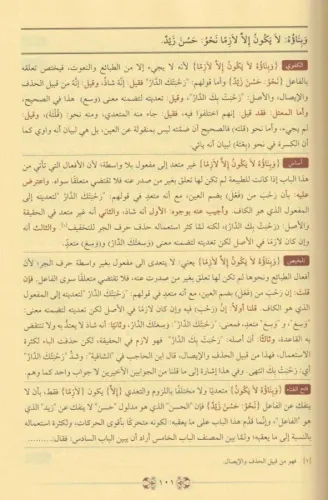 وَبِنَاؤُهُ: لَا يَكُونُ إِلَّا لَازِمًا نَحْوُ: حَسُنَ زَيْدٌ.
الكفوي {وَبِنَاؤُهُ لَا يَكُونُ إِلَّا لَازِمًا} لأنه لا يجيء إلا من الطبائع والنعوت، فيختص تعلقه
بالفاعل {نَحْوُ: حَسُنَ زَيْدٌ} وأما قولهم: "رَحُبَتْكَ الدَّارُ" فقيل: إنَّهُ شاذٌّ، وقيل: إنَّهُ من قبيل الحذف
والإيصال، والأصل: "رَحُبَتْ بِكَ الدَّارُ"، وقيل: تعديته لتضمنه معنى (وَسِعَ) هذا في الصحيح،
وأما المعتل: فقد قيل: إنهم اختلفوا فيه، فقيل: جاء منه المتعدي، ومنه نحو: (قُلْتُهُ)، وقيل:
لم يجيء، وأما نحو (قلته) فالصحيح أن ضمَّته ليس بمنقولة عن العين، بل هي لبيان أنه واوي كما
أن الكسرة في نحو (بِعْتُهُ) لبيان أنه يائي.
أساس {وَبِنَاؤُهُ لَا يَكُونُ إِلَّا لَازِمًا} غير متعد إلى مفعول بلا واسطة؛ لأن الأفعال التي تأتي من
هذا الباب إذا كانت للطبيعة لم تكن لها تعلق بغير من صدر عنه فلا تقتضي متعلقًا سواه. واعترض
عليه: بأن رَحُبَ من (فَعُلَ) بضم العين، مع أنه متعد في قولهم: "رَحُبَتْكَ الدَّارُ" لتعديته إلى
المفعول الذي هو الكاف. وأجيب عنه بوجوه: الأول أنه شاذ، والثاني أنه غير متعد في الحقيقة
والأصل: (رَحُبَتْ بِكَ الدَّارُ)، لكنه لمَّا كثر استعماله حذف حرف الجر للتخفيف[١] والثالث أنه
وإن كان لازمًا في الأصل لكن تعديته لتضمنه معنى (وَسِعَتْكَ الدَّارُ)، و(وَسِعَ) متعدٍّ.
التلخيص {وَبِنَاؤُهُ لَا يَكُونُ إِلَّا لَازِمًا} يعني: لا يتعدى الى مفعول بغير واسطة حرف الجر؛ لأن
أفعال الطبائع ونحوها لم تكن لها تعلق بغير من صدرت عنه، فلا تقتضي متعلقًا سوى الفاعل. فإن
قلت: إن رَحُبَ من (فَعُلَ) بضم العين، مع أنه متعد في قولهم: "رَحُبَتْكَ الدَّارُ" لتعديته إلى المفعول
الذي هو الكاف. قلنا أولاً: إنَّ (رَحُبَ) فيه وإن كان لازمًا في الأصل لكن تعديته لتضمنه معنى:
"وَسِعَ"، و"وَسِعَ" متعد، فمعنى: "رَحُبَتْكَ الدَّارُ": وَسِعَتْكَ الدَّارُ، وثانيًا: أنه شاذ لا يعتدُّ به ولا تنتقض
به القاعدة، وثالثًا: أن أصله: "رَحُبَتْ بِكَ الدَّارُ" فهو لازم في الحقيقة، لكن حذفت الباء لكثرة
الاستعمال، فهذا من قبيل الحذف والإيصال، قال ابن الحاجب في "الشافية": وشذَّ "رَحُبَتْكَ الدَّارُ"
أي: رَحُبَتْ بِكَ. انتهى وفي هذا إشارة إلى ما قلنا من الجوابين الأخيرين لا جواب واحد كما وهم
{وَبِنَاؤُهُ لَا يَكُونُ} متعديًا ولا مختلفًا باللزوم والتعدي {إِلَّا} يكون {لَازِمًا} فقط؛ بأن لا
ينفك عن الفاعل {نَحْوُ: حَسُنَ زَيْدٌ} فإن "الحسن" الذي هو مدلول "حسن" لا ينفك عن "زيد" الذي
هو "فاعل"، وإنما قدَّم هذا الباب على ما يعقبه؛ لكونه متحركًا بأقوى الحركات، ولكثرة استعماله
بالنسبة إلى ما يعقبه؛ ولما بين المصنف الباب الخامس أراد أن يبين الباب السادس؛ فقال:
[١] فهو من قبيل الحذف والإيصال.
١٠١